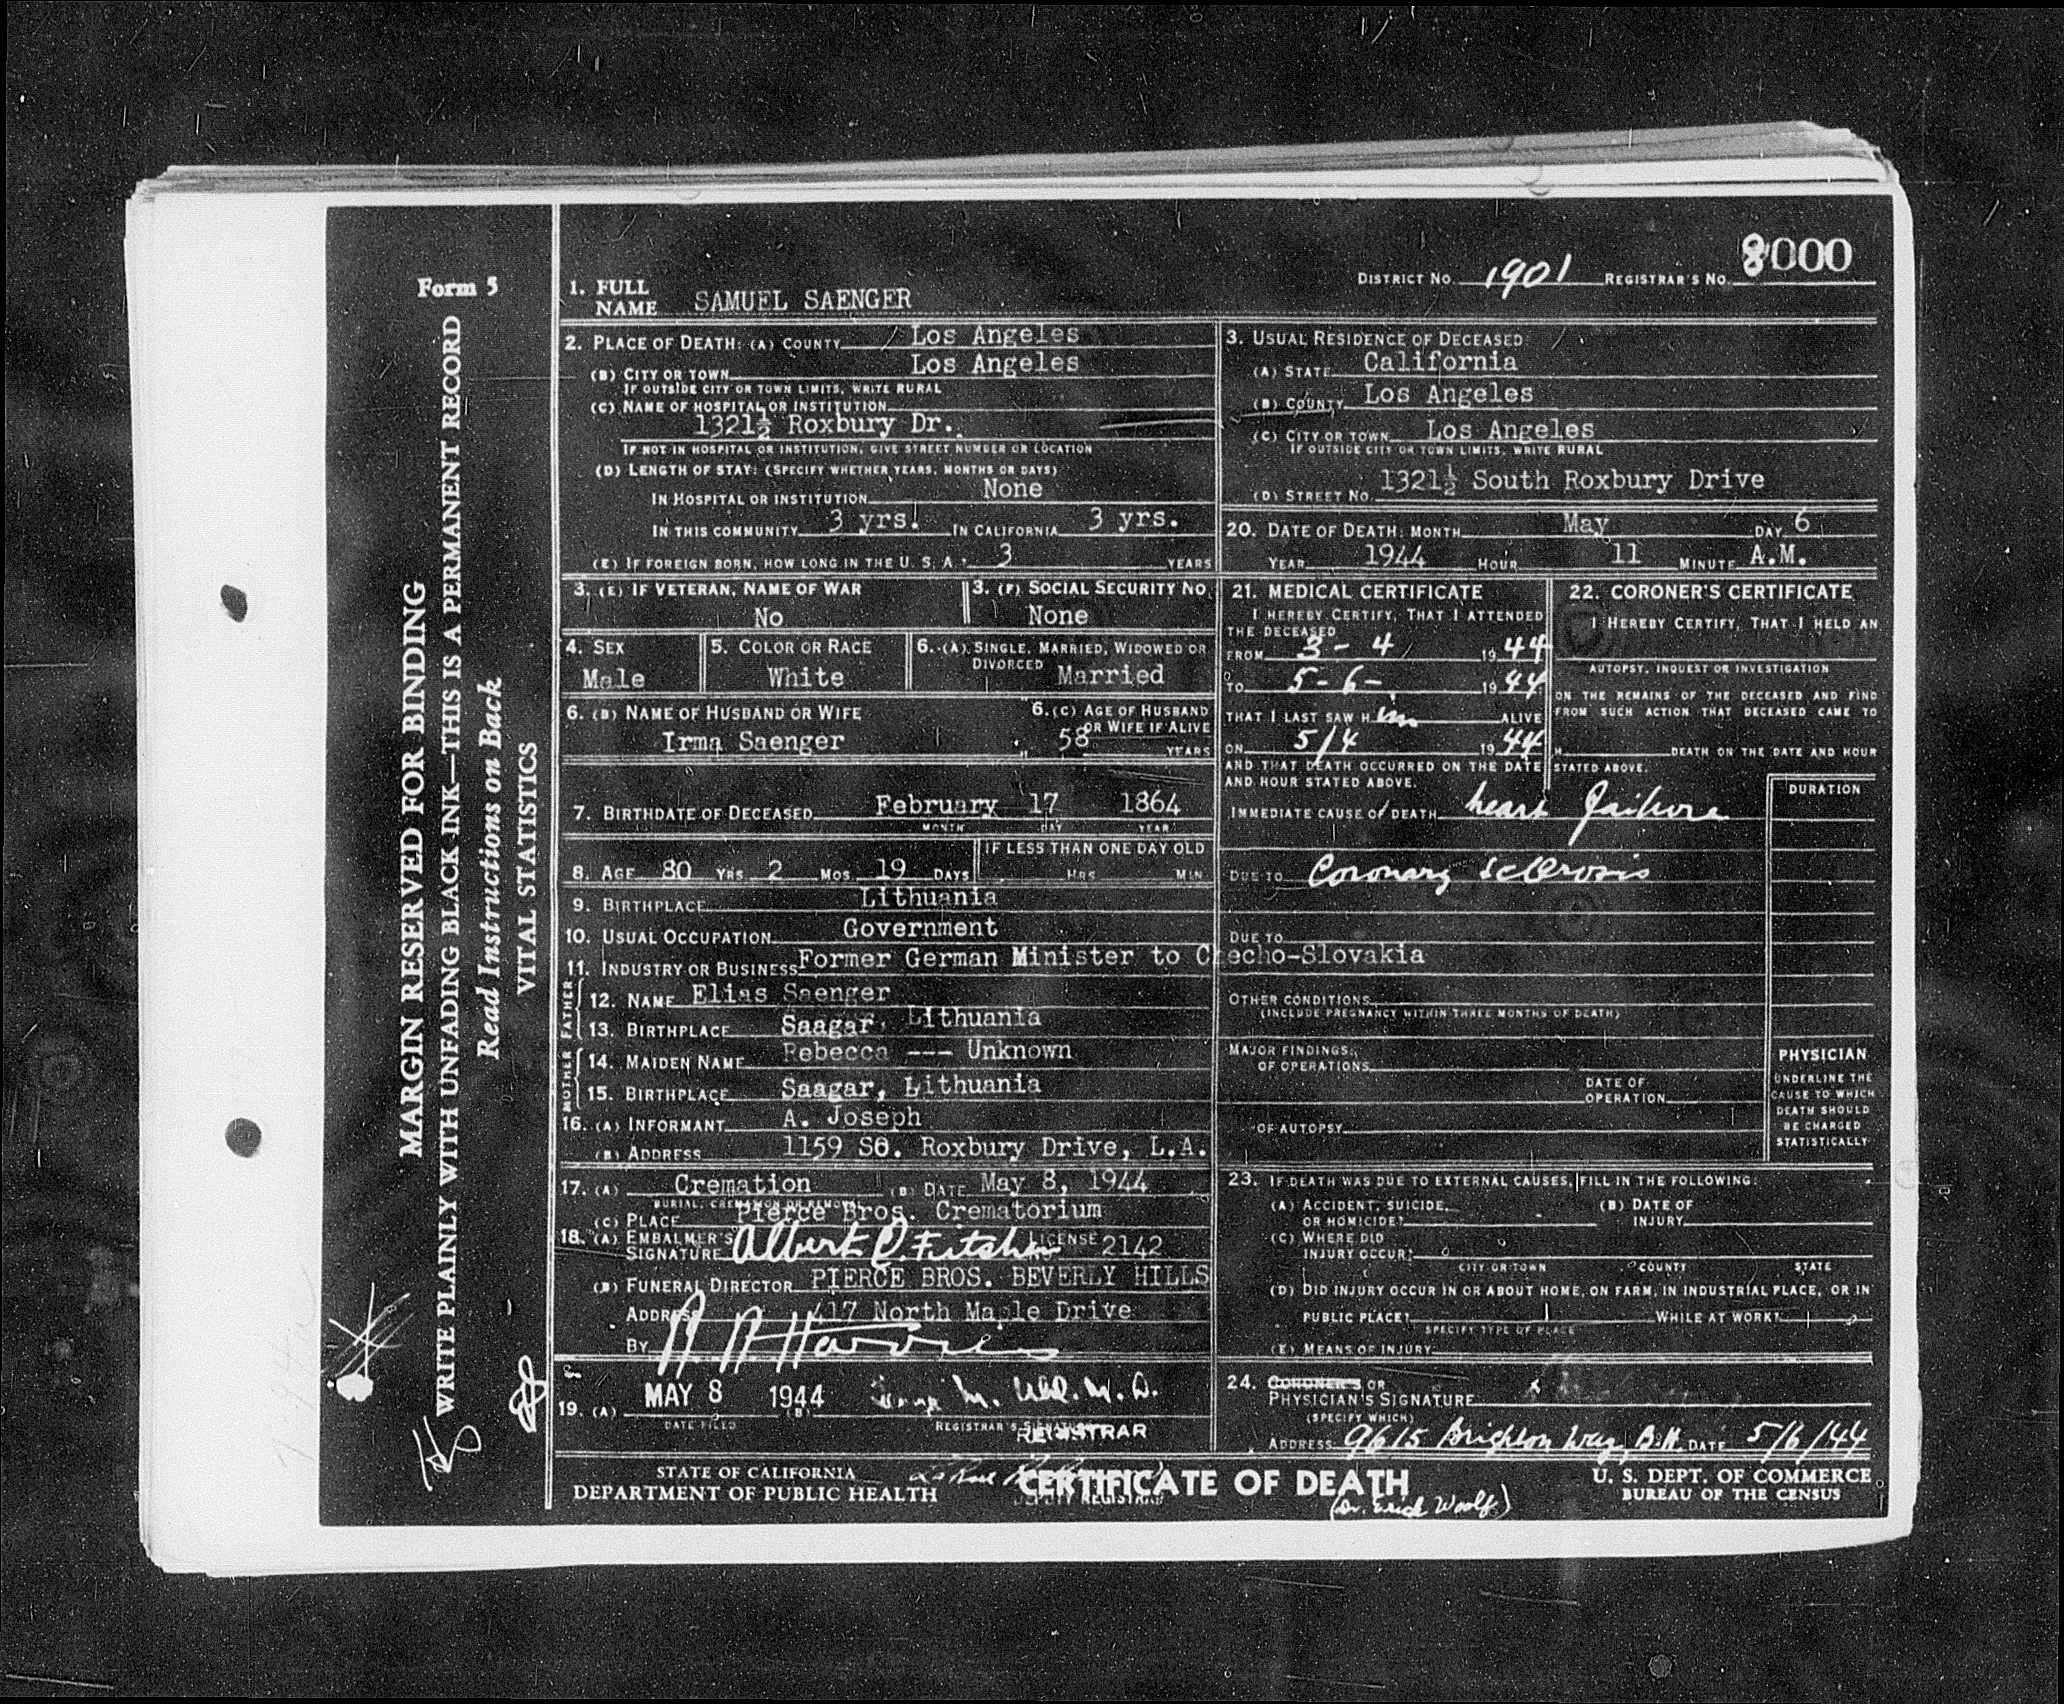 DISTRICT NO. 1901 REGISTRAR'S NO. 8000
Form 5
MARGIN RESERVED FOR BINDING
WRITE PLAINLY WITH UNFADING BLACK INK—THIS IS A PERMANENT RECORD
Read Instructions on Back
VITAL STATISTICS
1. FULL NAME SAMUEL SAENGER
2. PLACE OF DEATH: (A) COUNTY Los Angeles
(B) CITY OR TOWN Los Angeles
IF OUTSIDE CITY OR TOWN LIMITS, WRITE RURAL
(C) NAME OF HOSPITAL OR INSTITUTION
1321½ Roxbury Dr.
IF NOT IN HOSPITAL OR INSTITUTION, GIVE STREET NUMBER OR LOCATION
(D) LENGTH OF STAY: (SPECIFY WHETHER YEARS, MONTHS OR DAYS)
IN HOSPITAL OR INSTITUTION None
IN THIS COMMUNITY 3 yrs. IN CALIFORNIA 3 yrs.
(E) IF FOREIGN BORN, HOW LONG IN THE U. S. A.? 3 YEARS
3. USUAL RESIDENCE OF DECEASED:
(A) STATE California
(B) COUNTY Los Angeles
(C) CITY OR TOWN Los Angeles
IF OUTSIDE CITY OR TOWN LIMITS, WRITE RURAL
(D) STREET NO. 1321½ South Roxbury Drive
3. (E) IF VETERAN, NAME OF WAR No
3. (F) SOCIAL SECURITY NO. None
4. SEX Male
5. COLOR OR RACE White
6. (A) SINGLE, MARRIED, WIDOWED OR DIVORCED Married
6. (B) NAME OF HUSBAND OR WIFE Irma Saenger
6. (C) AGE OF HUSBAND OR WIFE IF ALIVE 58 YEARS
7. BIRTHDATE OF DECEASED February 17 1864
MONTH DAY YEAR
8. AGE 80 YRS. 2 MOS. 19 DAYS
IF LESS THAN ONE DAY OLD HRS. MIN.
9. BIRTHPLACE Lithuania
10. USUAL OCCUPATION Government
11. INDUSTRY OR BUSINESS Former German Minister to Checho-Slovakia
FATHER
12. NAME Elias Saenger
13. BIRTHPLACE Saagar, Lithuania
MOTHER
14. MAIDEN NAME Rebecca --- Unknown
15. BIRTHPLACE Saagar, Lithuania
16. (A) INFORMANT A. Joseph
(B) ADDRESS 1159 So. Roxbury Drive, L.A.
17. (A) Cremation (B) DATE May 8, 1944
BURIAL, CREMATION OR REMOVAL
(C) PLACE Pierce Bros. Crematorium
18. (A) EMBALMER'S SIGNATURE Albert LICENSE 2142
(B) FUNERAL DIRECTOR PIERCE BROS. BEVERLY HILLS
ADDRESS 417 North Maple Drive
BY
19. (A) MAY 8 1944 (B) M. M.D.
DATE FILED REGISTRAR'S SIGNATURE
REGISTRAR
20. DATE OF DEATH: MONTH May DAY 6
YEAR 1944 HOUR 11 MINUTE A.M.
21. MEDICAL CERTIFICATE
I HEREBY CERTIFY, THAT I ATTENDED
THE DECEASED
FROM 3-4 1944
TO 5-6- 1944
THAT I LAST SAW Him ALIVE
ON 5/4 1944
AND THAT DEATH OCCURRED ON THE DATE
AND HOUR STATED ABOVE.
22. CORONER'S CERTIFICATE
I HEREBY CERTIFY, THAT I HELD AN
AUTOPSY, INQUEST OR INVESTIGATION
ON THE REMAINS OF THE DECEASED AND FIND
FROM SUCH ACTION THAT DECEASED CAME TO
H DEATH ON THE DATE AND HOUR
STATED ABOVE.
DURATION
IMMEDIATE CAUSE OF DEATH heart failure
DUE TO Coronary Sclerosis
DUE TO
OTHER CONDITIONS
(INCLUDE PREGNANCY WITHIN THREE MONTHS OF DEATH)
MAJOR FINDINGS:
OF OPERATIONS
DATE OF OPERATION
OF AUTOPSY
PHYSICIAN
UNDERLINE THE
CAUSE TO WHICH
DEATH SHOULD
BE CHARGED
STATISTICALLY
23. IF DEATH WAS DUE TO EXTERNAL CAUSES, FILL IN THE FOLLOWING:
(A) ACCIDENT, SUICIDE, OR HOMICIDE?
(B) DATE OF INJURY
(C) WHERE DID INJURY OCCUR?
CITY OR TOWN COUNTY STATE
(D) DID INJURY OCCUR IN OR ABOUT HOME, ON FARM, IN INDUSTRIAL PLACE, OR IN
PUBLIC PLACE? WHILE AT WORK?
SPECIFY TYPE OF PLACE
(E) MEANS OF INJURY
24. CORONER'S OR PHYSICIAN'S SIGNATURE
(SPECIFY WHICH)
ADDRESS 9615 Brighton Way, B.H. DATE 5/6/44
STATE OF CALIFORNIA
DEPARTMENT OF PUBLIC HEALTH
CERTIFICATE OF DEATH
(Dr. Erich Woolf)
U. S. DEPT. OF COMMERCE
BUREAU OF THE CENSUS